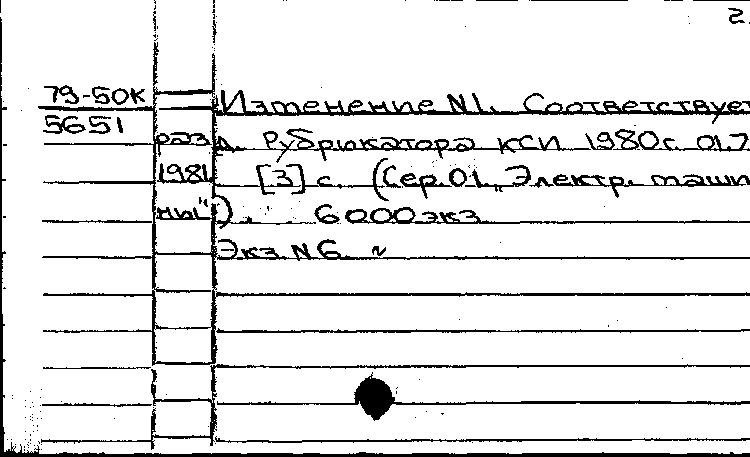 2
79-50К Изменение N1. Соответствует
5651 разд. Рубрикатора КСИ 1980г. 01.7
1981 [3] с. (Сер.01 „Электр. маши
ны"). 6000экз
Экз. N6